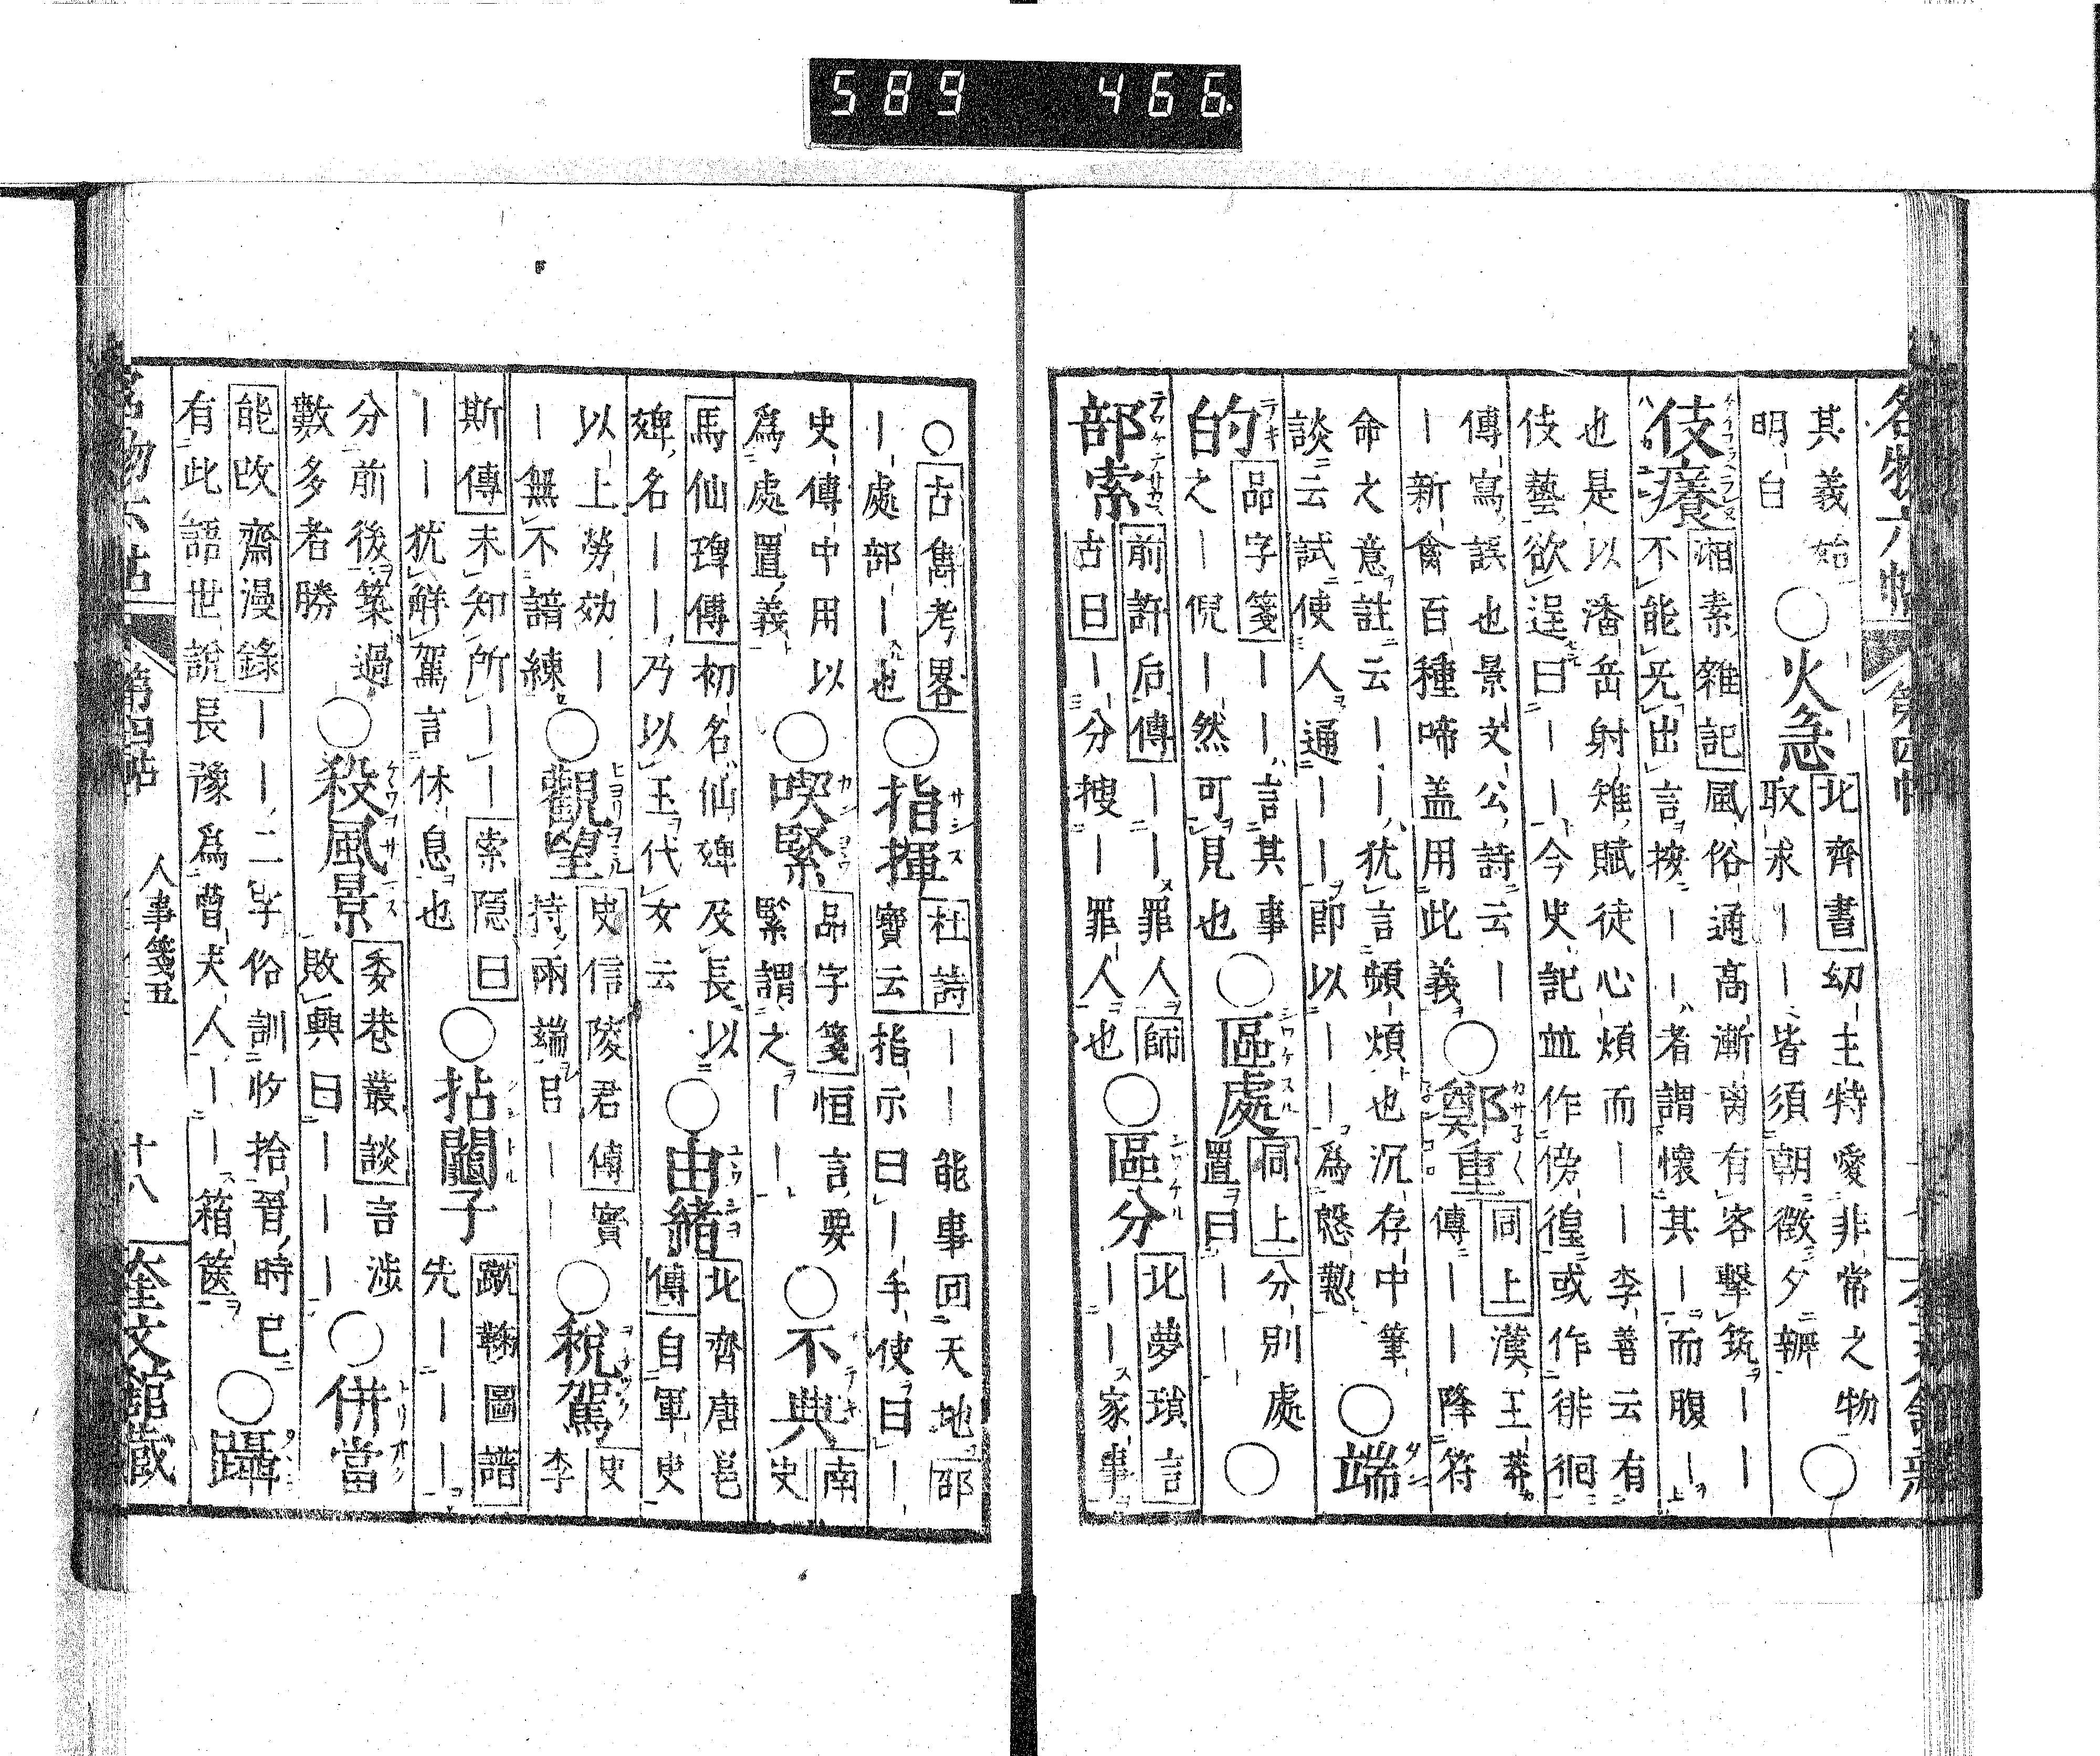 589 466.
名物六帖 第四帖
其義始
明白
○火急
北齊書幼主特愛非常之物
取求——皆須朝徴夕辦
○
伎癢
湘素雜記風俗通高漸离有客擊筑——
不能无出言按——者謂懷其—而腹—
也是以潘岳射雉賦徒心煩而——李善云有
伎藝欲逞曰———今史記並作傍徨或作徘徊
傳寫誤也景文公詩云—
—新禽百種啼盖用此義
○鄭重
同上漢王莽
傳———降符
命之意註云——猶言頻煩也沉存中筆
談云試使人通——即以——為慇懃
○端
的
品字箋——言其事
之—倪—然可見也
○區處
同上分別處
置曰——
○
部索
前許后傳——罪人師
古曰—分搜—罪人也
○區分
北夢瑣言
———家事
○古雋考畧
—處部—也
○指揮
杜詩——能事回天地邵
寶云指示曰—手使曰—
史傳中用以
為處置義
○喫緊
品字箋恒言要
緊謂之——
○不典
南
史
馬仙琕傳初名仙婢及長以
婢名——乃以玉代女云
○由緒
北齊唐邕
傳自軍吏
以上勞効—
—無不諳練
○觀望
史信陵君傳實
持兩端㠯——
○稅駕
史
李
斯傳未知所——索隱曰
——猶解駕言休息也
○拈鬮子
蹴鞠圖譜
先———
分前後築過
數多者勝
○殺風景
委巷叢談言涉
敗興曰———
○併當
能改齋漫錄——二字俗訓收拾晉時已
有此語世說長豫為曹夫人——箱篋
○躡
名物六帖 第四帖 人事箋五 十八 奎文館藏